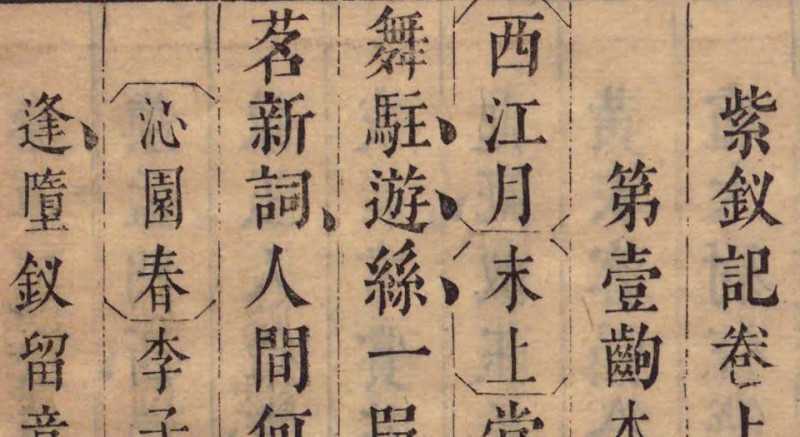 紫釵記卷上
第壹齣本
西江月末上堂
舞駐遊絲一
茗新詞人間何
沁園春李子
逢墮釵留意